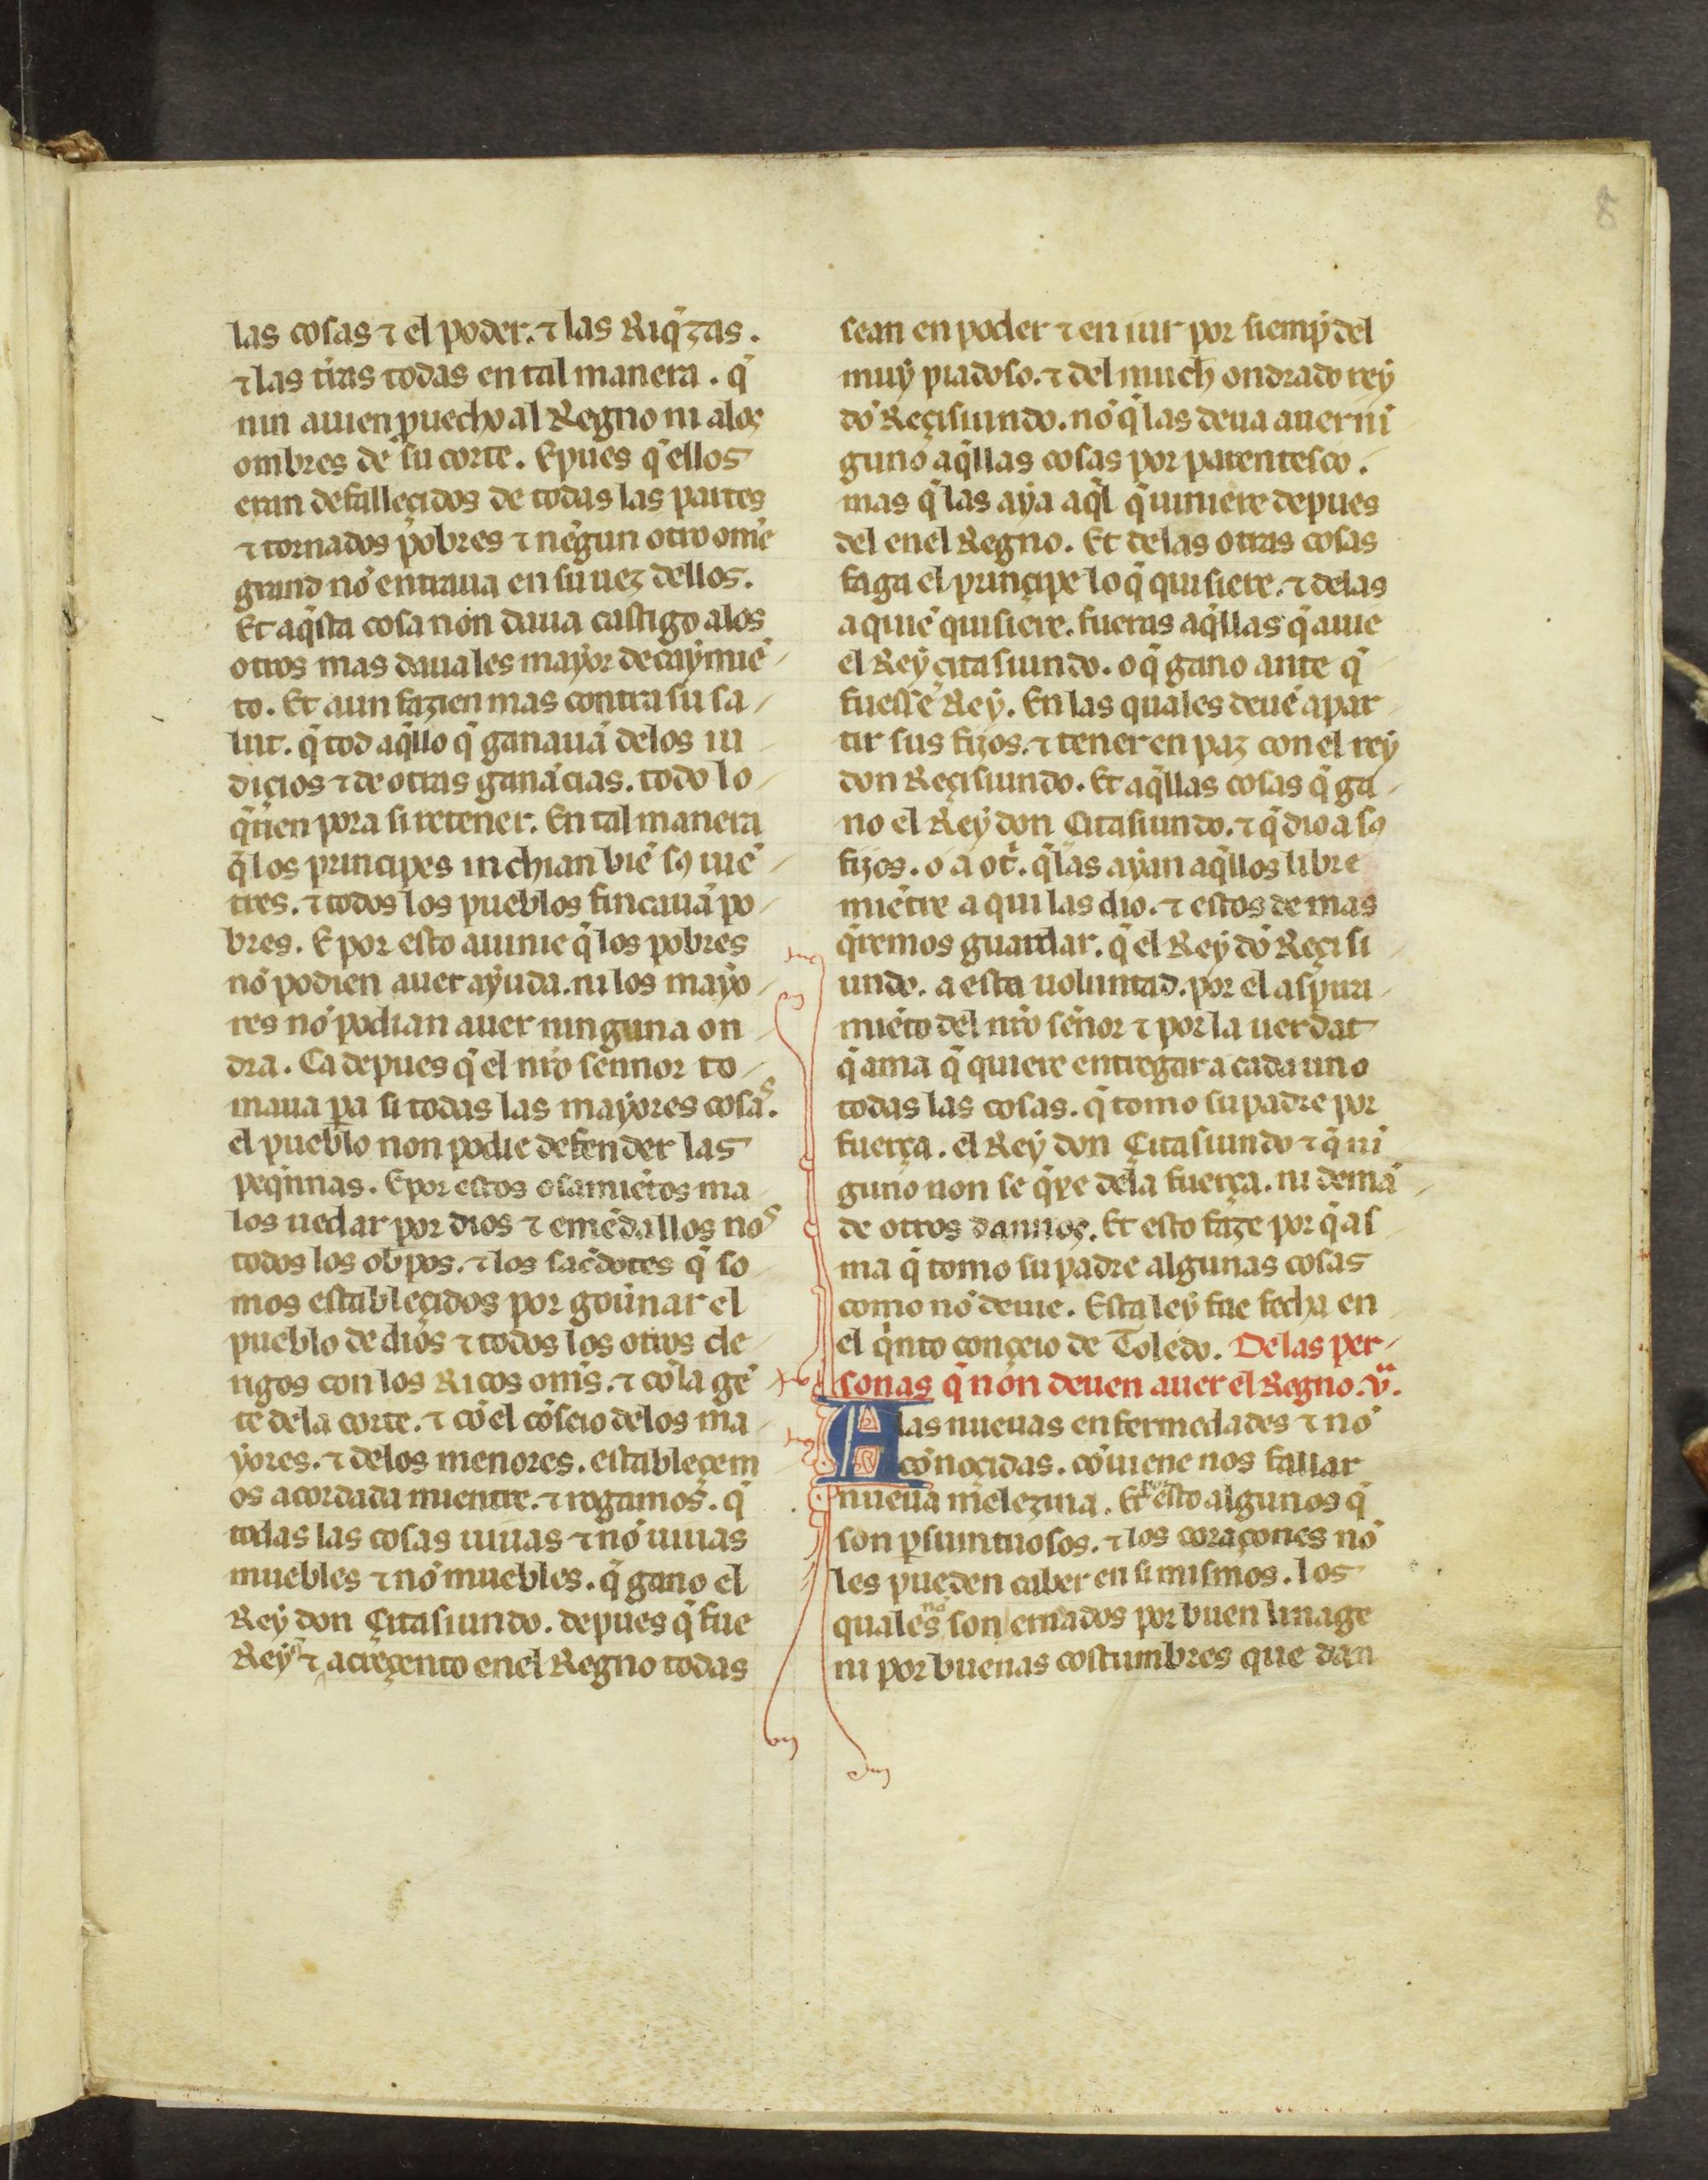 8
las cosas ⁊ el poder. ⁊ las Riq̃zas.
⁊ las tr̃as todas en tal manera. q̃
nin auien puecho al Regno ni alos
ombres de su corte. Epues q̃ ellos
eran defalleçidos de todas las partes
⁊ tornados pobres ⁊ negun otro om̃e
grand nō entraua en su uez dellos.
Et aq̃sta cosa non daua castigo alos
otros mas dauales mayor decaymiē
to. Et aun fazien mas contra su sa
lut. q̃ tod aq̃llo q̃ ganauā delos iu
diçios ⁊ de otras ganācias. todo lo
q̃rien pora si retener. En tal manera
q̃ los prinçipes inchian biē sꝯ uiē
tres. ⁊ todos los pueblos fincauā po
bres. E por esto auinie q̃ los pobres
nō podien auer ayuda. ni los mayo
res nō podian auer ninguna on
dra. Ca depues q̃ el nr̃o sennor to
maua pa si todas las mayores cosas.
el pueblo non podie defender las
peq̃nnas. E por estos osamiētos ma
los uedar por dios ⁊ emēdallos nos
todos los ob̃pos. ⁊ los sac̃dotes q̃ so
mos establecidos por gou̇nar el
pueblo de dios ⁊ todos los otros cle
rigos con los Ricos om̃s. ⁊ cō la gē
te dela corte. ⁊ cō el cōseio delos ma
yores. ⁊ delos menores. estableçem
os acordada mientre. ⁊ rogamos. q̃
todas las cosas uiuas ⁊ nō uiuas
muebles ⁊ nō muebles. q̃ gano el
Rey don Çitasiundo. depues q̃ fue
Rey ⁊ acreçento enel Regno todas
sean en poder ⁊ en iur por siemp̃ del
muy piadoso. ⁊ del much ondrado rey
dō Reçisiundo. nō q̃ las deua auer nī
guno aq̃llas cosas por parentesco.
mas q̃ las aya aq̃l q̃ uiniere depues
del enel Regno. Et delas otras cosas
faga el prinçipe lo q̃ quisiere. ⁊ delas
a quiē quisiere. fueras aq̃llas q̃ auie
el Rey çitasiundo. o q̃ gano ante q̃
fuesse Rey. En las quales deuē apar
tir sus fijos. ⁊ tener en paz con el rey
don Reçisiundo. Et aq̃llas cosas q̃ ga
no el Rey don Çitasiundo. ⁊ q̃ dio a sꝯ
fijos. o a ot̃. q̃ las ayan aq̃llos libre
miētre a qui las dio. ⁊ estos demas
q̃remos guardar. q̃ el Rey dō Reçisi
unde. a esta uoluntad. por el aspira
miēto del nr̃o sēnor ⁊ por la uerdat
q̃ ama q̃ quiere entregar a cada uno
todas las cosas. q̃ tomo su padre por
fuerça. el Rey don Çitasiundo ⁊ q̃ nī
guno non se q̃xe dela fuerça. ni demā
de otros dannos. Et esto faze por q̃ as
ma q̃ tomo su padre algunas cosas
como nō deuie. Esta ley fue fecha en
el q̃nto conçeio de Toledo. Delas per
sonas q̃ non deuen auer el Regno. v.ᵃ
A las nueuas enfermedades ⁊ nō
cōnoçidas. cōuiene nos fallar
nueua melezina. Et por esto algunos q̃
son p̱suintuosos. ⁊ los coraçones nō
les pueden caber en si mismos. los
quales no son ernados por buen linage
ni por buenas costumbres que dan